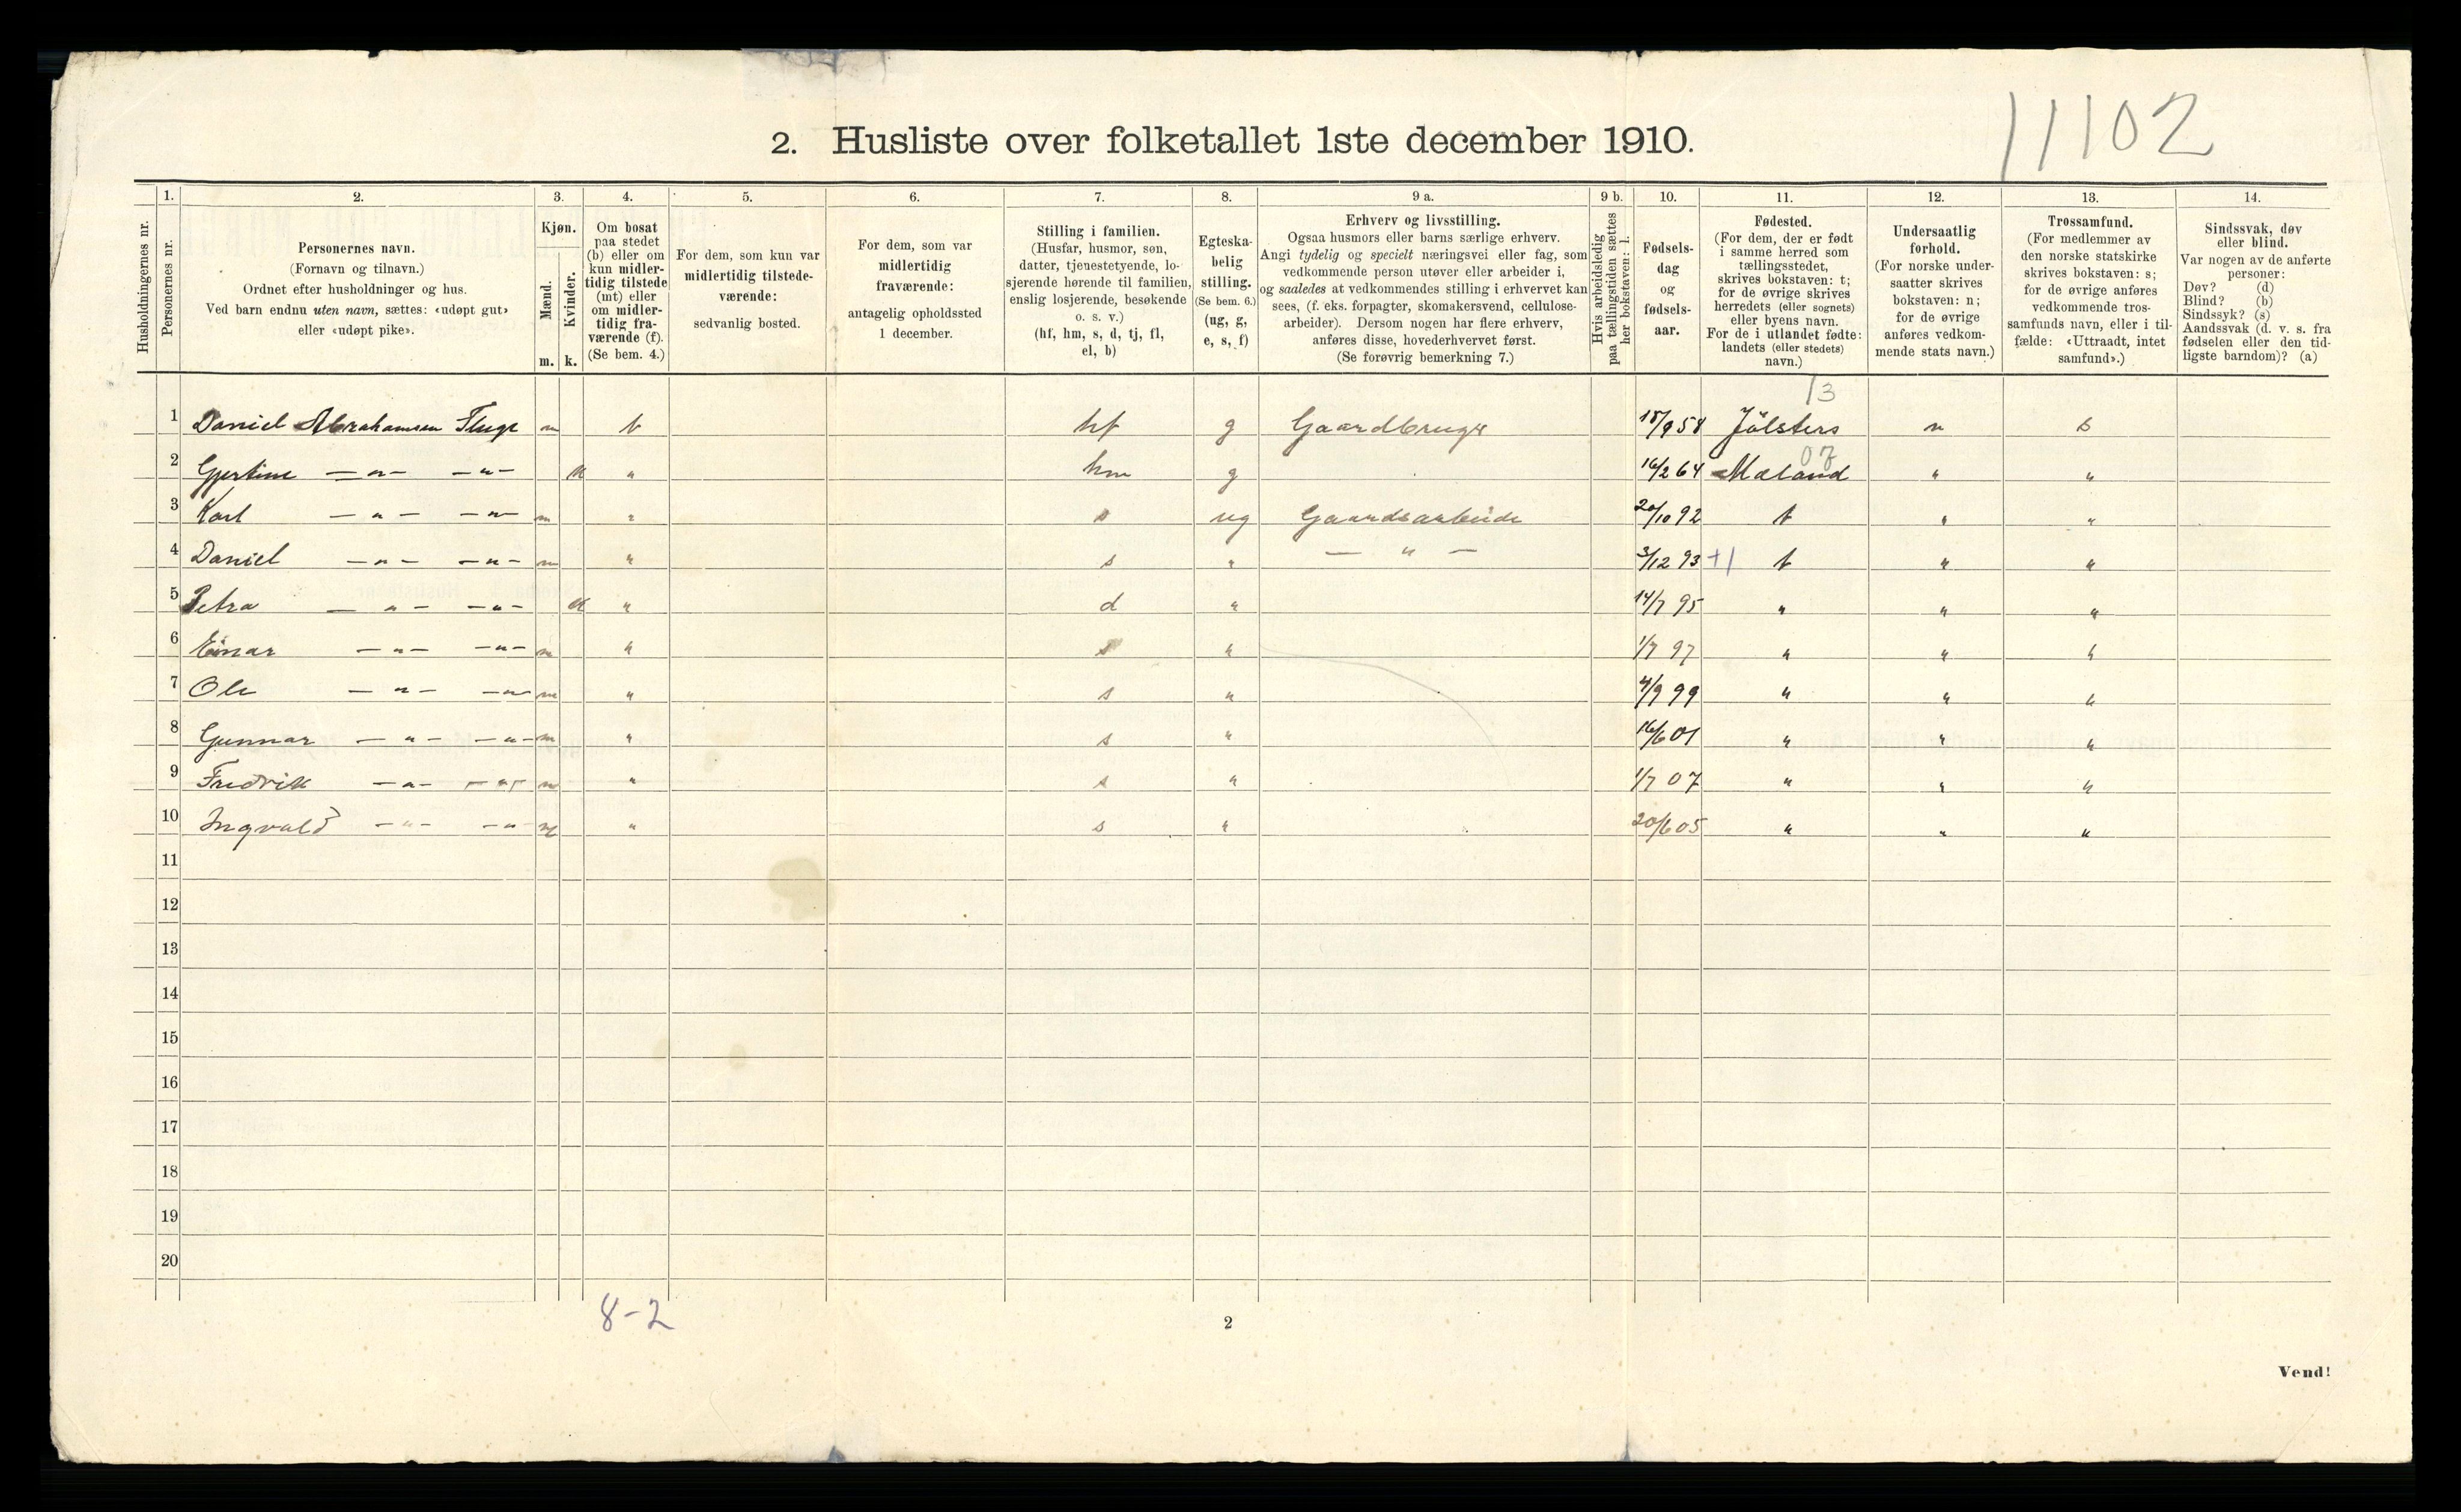 11102
2. Husliste over folketallet 1ste december 1910.
Husholdningernes nr.
1.
Personernes nr.
2.
Personernes navn.
(Fornavn og tilnavn.)
Ordnet efter husholdninger og hus.
Ved barn endnu uten navn, sættes: «udøpt gut»
eller «udøpt pike».
3.
Kjøn.
Mænd.
m.
Kvinder.
k.
4.
Om bosat
paa stedet
(b) eller om
kun midler-
tidig tilstede
(mt) eller
om midler-
tidig fra-
værende (f).
(Se bem. 4.)
5.
For dem, som kun var
midlertidig tilstede-
værende:
sedvanlig bosted.
6.
For dem, som var
midlertidig
fraværende:
antagelig opholdssted
1 december.
7.
Stilling i familien.
(Husfar, husmor, søn,
datter, tjenestetyende, lo-
sjerende hørende til familien,
enslig losjerende, besøkende
o. s. v.)
(hf, hm, s, d, tj, fl,
el, b)
8.
Egteska-
belig
stilling.
(Se bem. 6.)
(ug, g,
e, s, f)
9 a.
Erhverv og livsstilling.
Ogsaa husmors eller barns særlige erhverv.
Angi tydelig og specielt næringsvei eller fag, som
vedkommende person utøver eller arbeider i,
og saaledes at vedkommendes stilling i erhvervet kan
sees, (f. eks. forpagter, skomakersvend, cellulose-
arbeider). Dersom nogen har flere erhverv,
anføres disse, hovederhvervet først.
(Se forøvrig bemerkning 7.)
9 b.
Hvis arbeidsledig
paa tællingstiden sættes
her bokstaven: l.
10.
Fødsels-
dag
og
fødsels-
aar.
11.
Fødested.
(For dem, der er født
i samme herred som
tællingsstedet,
skrives bokstaven: t;
for de øvrige skrives
herredets (eller sognets)
eller byens navn.
For de i utlandet fødte:
landets (eller stedets)
navn.)
12.
Undersaatlig
forhold.
(For norske under-
saatter skrives
bokstaven: n;
for de øvrige
anføres vedkom-
mende stats navn.)
13.
Trossamfund.
(For medlemmer av
den norske statskirke
skrives bokstaven: s;
for de øvrige anføres
vedkommende tros-
samfunds navn, eller i til-
fælde: «Uttraadt, intet
samfund».)
14.
Sindssvak, døv
eller blind.
Var nogen av de anførte
personer:
Døv? (d)
Blind? (b)
Sindssyk? (s)
Aandssvak (d. v. s. fra
fødselen eller den tid-
ligste barndom)? (a)
13
1 Daniel Abrahamsen Fluge m b hf g Gaardbruger 18/9 58 Jölsters n s
07
2 Gjertine — " — — " — k " hm g 16/2 64 Mæland " "
3 Karl — " — — " — m " s ug Gaardsarbeide 20/10 92 t " "
4 Daniel — " — — " — m " s " — " — 3/12 93 +1 t " "
5 Petra — " — — " — k " d " 14/7 95 " " "
6 Einar — " — — " — m " s " 1/7 97 " " "
7 Ole — " — — " — m " s " 4/9 99 " " "
8 Gunnar — " — — " — m " s " 16/6 01 " " "
9 Fredrik — " — — " — m " s " 1/7 07 " " "
10 Ingvald — " — — " — m " s " 20/6 05 " " "
11
12
13
14
15
16
17
18
19
20
8-2
2
Vend!